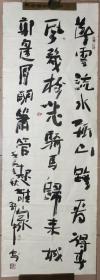 斷雲流水孤山路看得春
風幾樹花騎馬歸來城
郭月明簫管起誰家